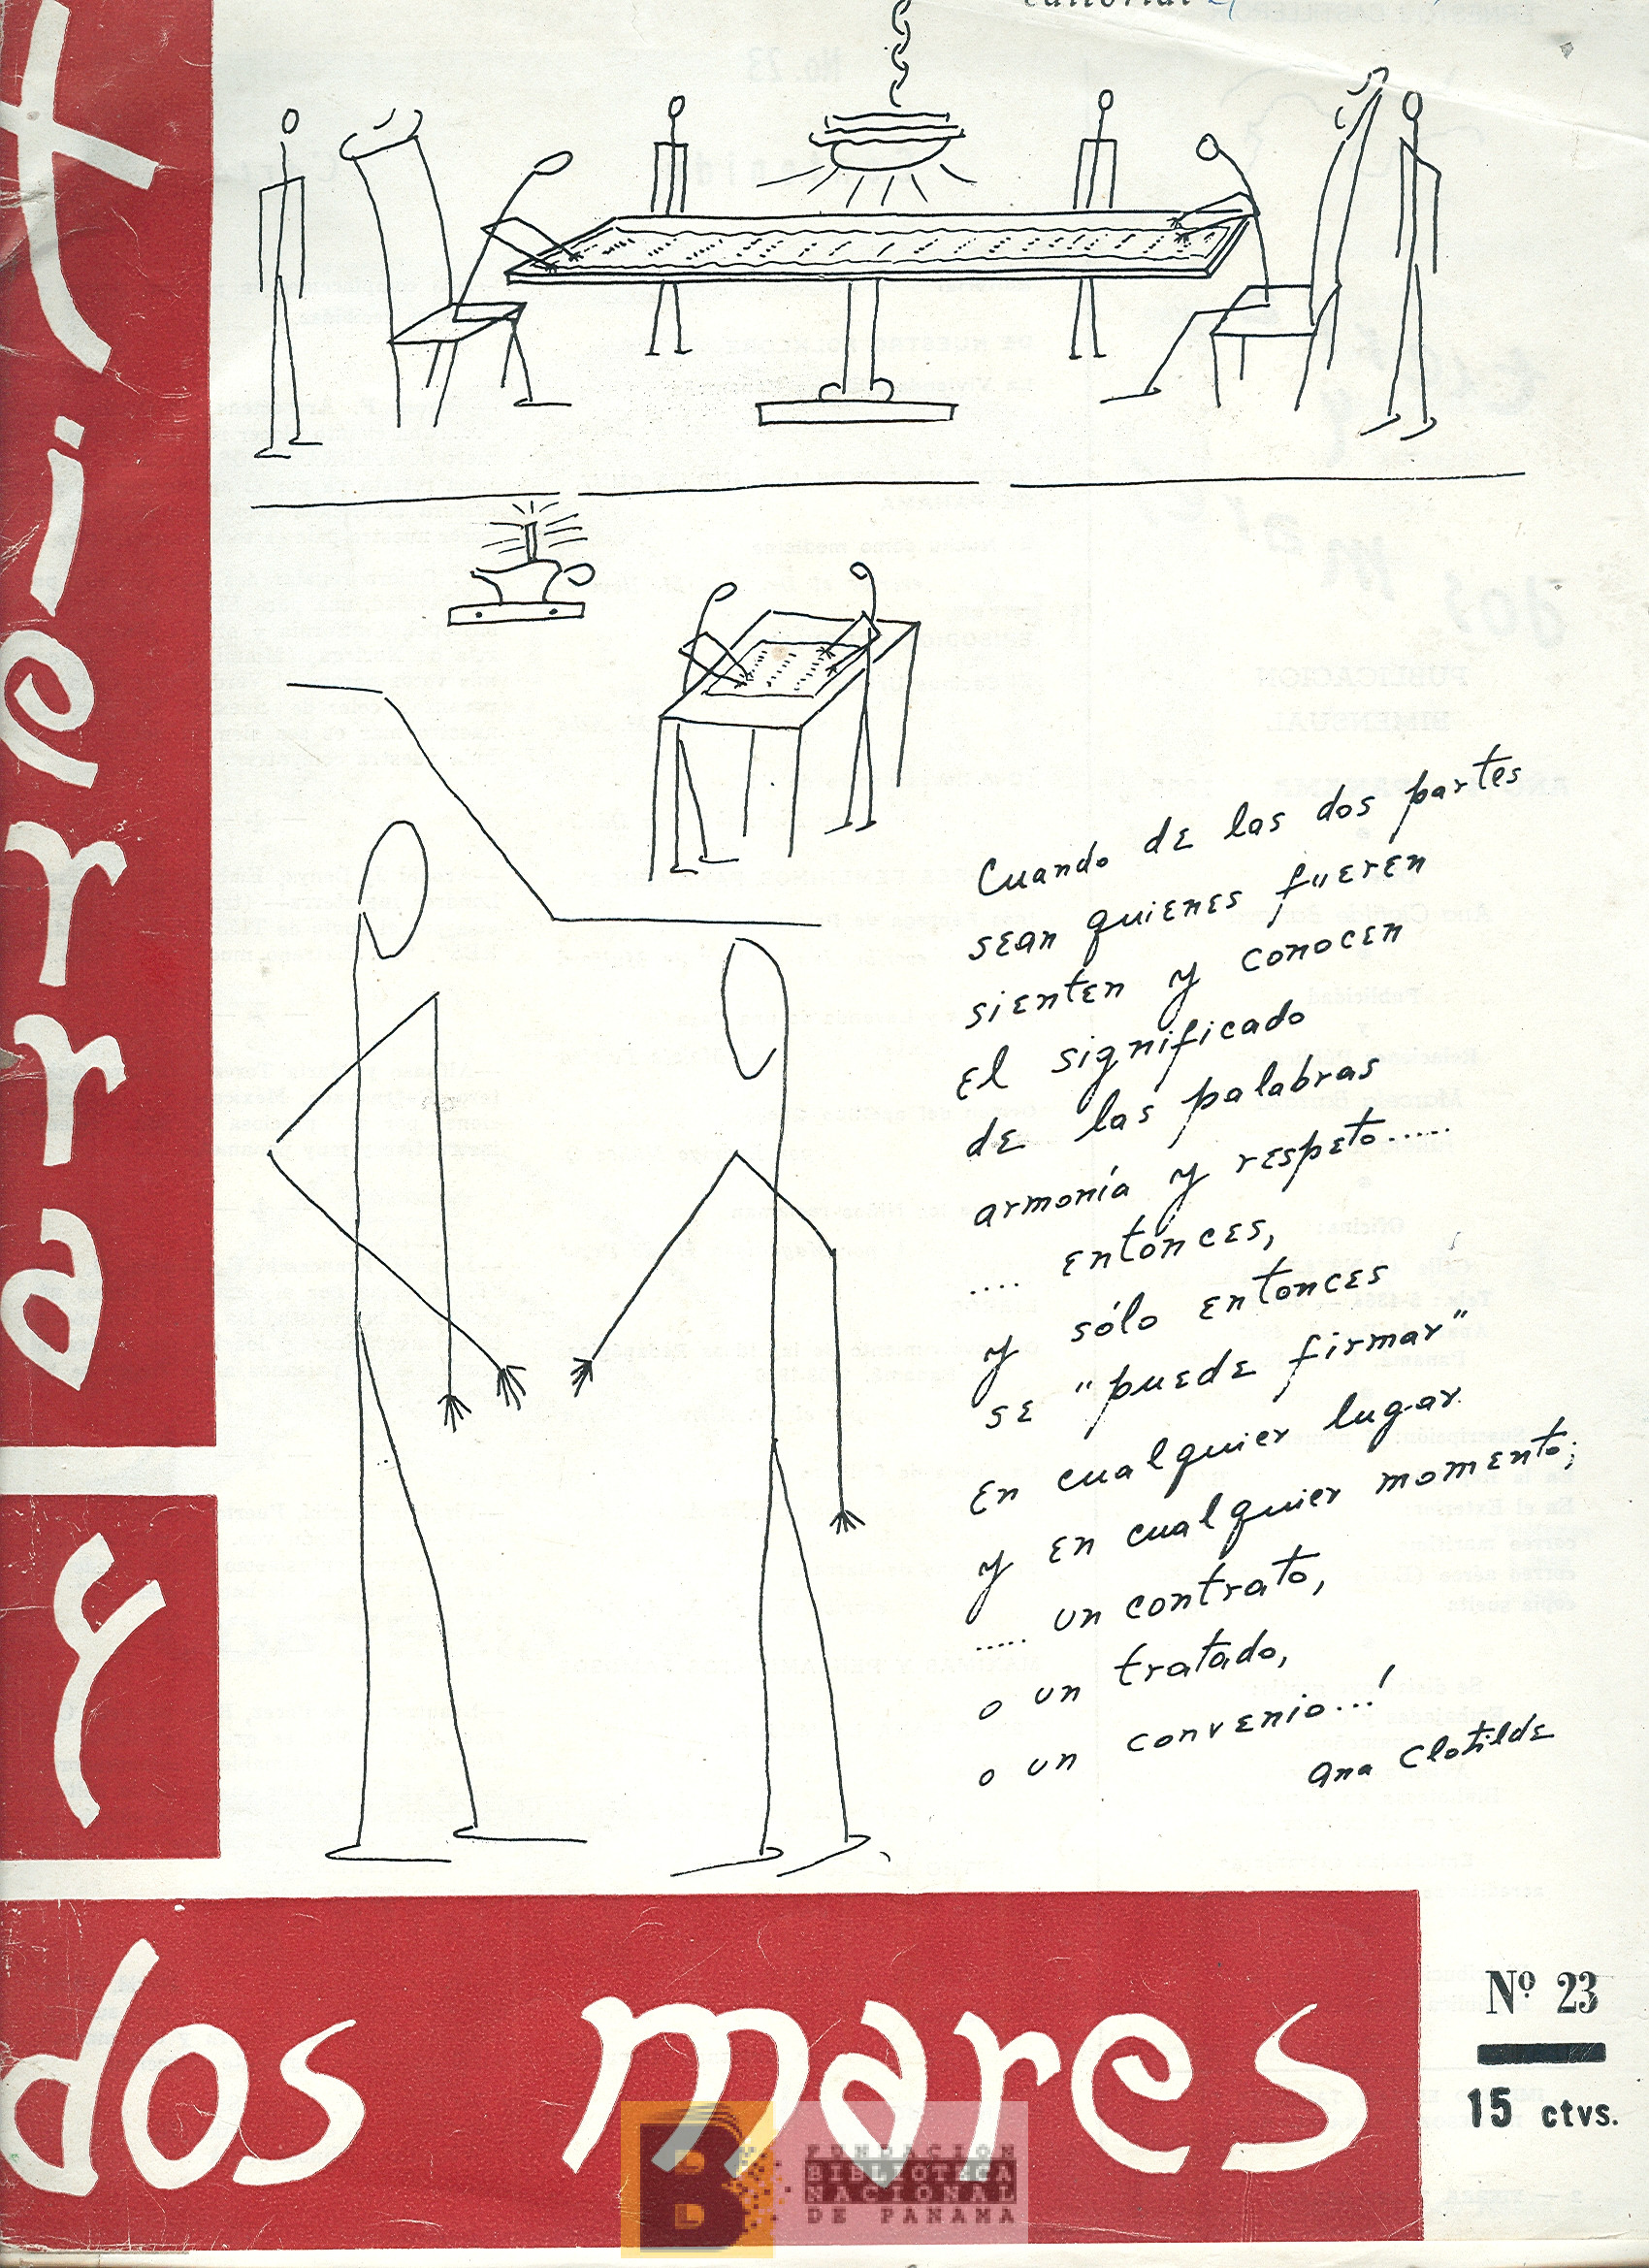 editorial
tierra
y
dos mares
Cuando de las dos partes
sean quienes fueren
sienten y conocen
el significado
de las palabras
armonía y respeto.....
.... entonces,
y sólo entonces
se "puede firmar"
en cualquier lugar
y en cualquier momento;
..... un contrato,
o un tratado,
o un convenio...!
Ana Clotilde
Nº 23
15 ctvs.
B
FUNDACION
BIBLIOTECA
NACIONAL
DE PANAMA